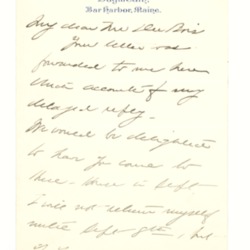 Bar Harbor, Maine.
My dear Mr Du Bois
Your letter was
forwarded to me here
which accounts for my
delayed reply.
We would be delighted
to have you come to
these in Sept
I will not return myself
until Sept 9th, but